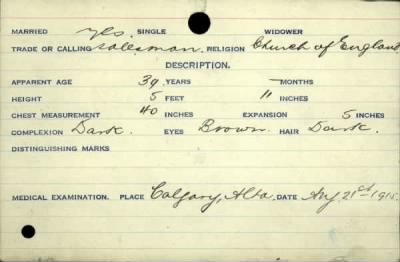 MARRIED yes. SINGLE WIDOWER
TRADE OR CALLING salesman. RELIGION Church of England
DESCRIPTION.
APPARENT AGE 39 YEARS — MONTHS
HEIGHT 5 FEET 11 INCHES
CHEST MEASUREMENT 40 INCHES EXPANSION 5 INCHES
COMPLEXION Dark. EYES Brown. HAIR Dark.
DISTINGUISHING MARKS
MEDICAL EXAMINATION. PLACE Calgary, Alta. DATE Aug 21st 1915.